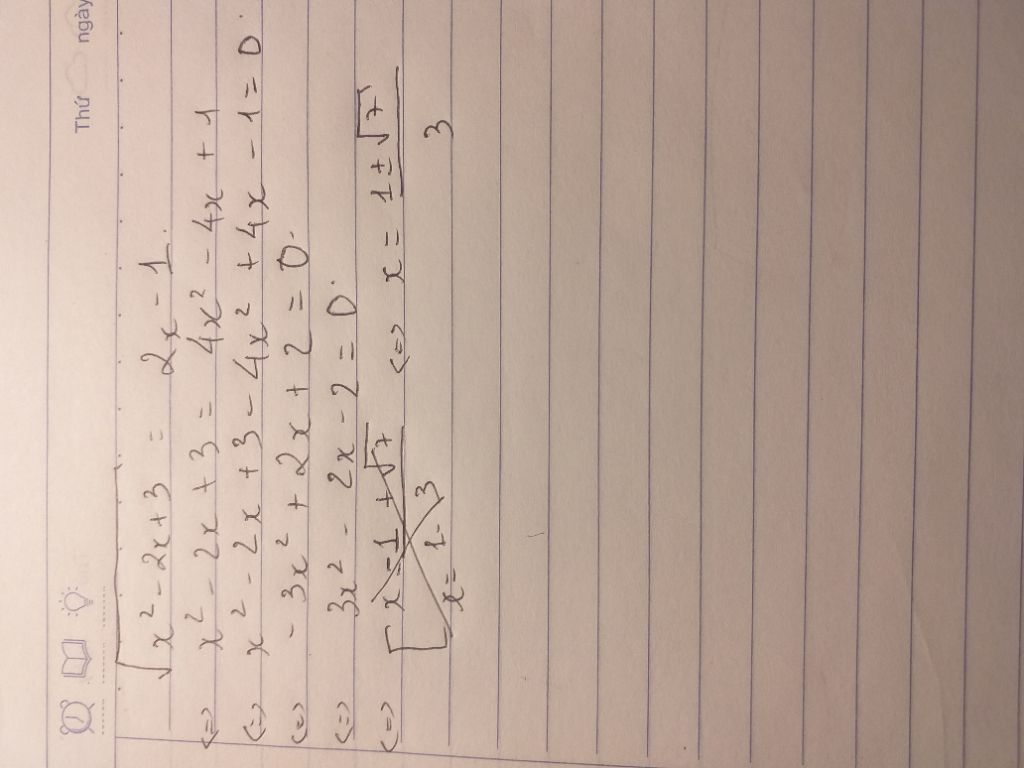 Thứ ngày
√(x² - 2x + 3) = 2x - 1.
<=> x² - 2x + 3 = 4x² - 4x + 1
<=> x² - 2x + 3 - 4x² + 4x - 1 = 0.
<=> - 3x² + 2x + 2 = 0.
<=> 3x² - 2x - 2 = 0.
<=> <=> x = (1 ± √7)/3